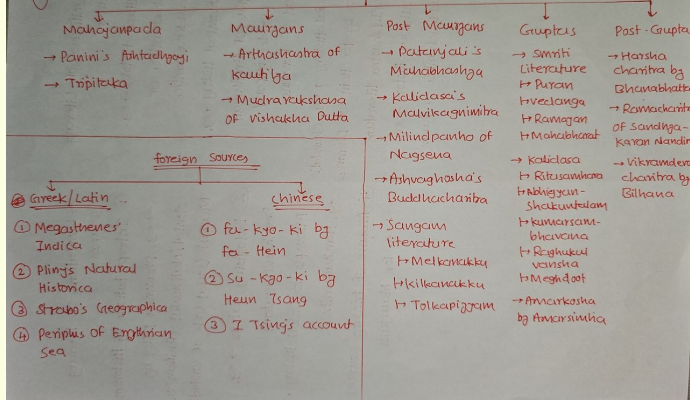 Mahajanpada
→ Panini's Ashtadhyayi
→ Tripitaka
Mauryans
→ Arthashastra of
Kautilya
→ Mudrarakshasa
of Vishakha Dutta
Post Mauryans
→ Patanjali's
Mahabhashya
→ Kalidasa's
Malvikagnimitra
→ Milindpanho of
Nagsena
→ Ashvaghosha's
Buddhacharitra
→ Sangam
literature
↦ Melkanakku
↦ Kilkanakku
↦ Tolkapiyyam
Guptas
→ Smriti
Literature
↦ Puran
↦ Vedanga
↦ Ramayan
↦ Mahabharat
→ Kalidasa
↦ Ritusamhara
↦ Abhigyan-
Shakuntalam
↦ Kumarsam-
bhavana
↦ Raghukul
vansha
↦ Meghdoot
→ Amarkosha
by Amarsimha
Post-Gupta
→ Harsha
charitra by
Bhanabhatta
→ Ramacharit
of Sandhya-
karan Nandin
→ Vikramdev
charitra by
Bilhana
foreign sources
Greek/Latin
① Megasthenes'
Indica
② Pliny's Natural
Historica
③ Strabo's Geographica
④ Periplus of Erythrian
Sea
Chinese
① fu-kyo-ki by
fa-Hein
② Su-kyo-ki by
Heun Tsang
③ I Tsing's account